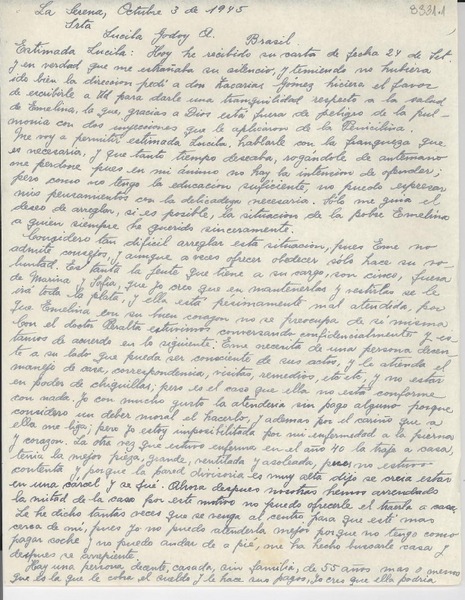 La Serena, Octubre 3 de 1945
8331.1
Srta
Lucila Godoy A. Brasil
Estimada Lucila: Hoy he recibido su carta de fecha 24 de Set.
y en verdad que me extrañaba su silencio, y temiendo no hubiera
ido bien la direccion pedí a don Zacarías Gómez hiciera el favor
de escribirle a Ud para darle una tranquilidad respecto a la salud
de Emelina, la que, gracias a Dios está fuera de peligro de la pul-
monia con dos inyecciones que le aplicaron de la Penicilina.
Me voy a permitir estimada Lucila, hablarle con la franqueza que
es necesaria, y que tanto tiempo deseaba, rogándole de antemano
me perdone, pues en mi ánimo no hay la intencion de ofender;
pero como no tengo la educacion suficiente, no puedo expresar
mis pensamientos con la delicadeza necesaria. Sólo me guia el
deseo de arreglar, si es posible, la situacion de la pobre Emelina
a quien siempre he querido sinceramente.
Considero tan dificil arreglar esta situacion, pues Eme no
admite consejos, y aunque a veces ofrecer obedecer sólo hace su vo-
luntad. Es tanta la gente que tiene a su cargo, son cinco, fuera
de Marina y Sofia, que yo creo que en mantenerlas y vestirlas se le
irá toda la plata, y ella está pesimamente mal atendida, por
que Emelina con su buen corazon no se preocupa de si misma.
Con el doctor Peralta estuvimos conversando confidencialmente y es-
tamos de acuerdo en lo siguiente: Eme necesita de una persona decen-
te a su lado que pueda ser consciente de sus actos, y le atienda el
manejo de casa, correspondencia, visitas, remedios, etc. etc. y no estar
en poder de chiquillas; pero es el caso que ella no está conforme
con nada. Yo con mucho gusto la atenderia sin pago alguno porque
considero un deber moral el hacerlo, y ademas por el cariño que a
ella me liga; pero yo estoy imposibilitada por mi enfermedad a la piernas
y corazon. La otra vez que estuvo enferma en el año 40 la traje a casa,
tenia la mejor pieza, grande, ventilada y asoleada, pero, no estuvo
contenta, y porque la pared divisoria es muy alta dijo se creia estar
en una carcel y se fué. Ahora despues nosotras hemos arrendado
la mitad de la casa por este motivo no puedo ofrecerle el traerla a casa.
Le he dicho tantas veces que se venga al centro para que esté mas
cerca de mi, pues yo no puedo atenderla mejor porque no tengo como
pagar coche y no puedo andar de a pié, me ha hecho buscarle casa y
despues se arrepiente.
Hay una persona decente, casada, sin familia, de 55 años mas o menos
que es la que le cobra el sueldo y le hace sus pagos, yo creo que ella podria